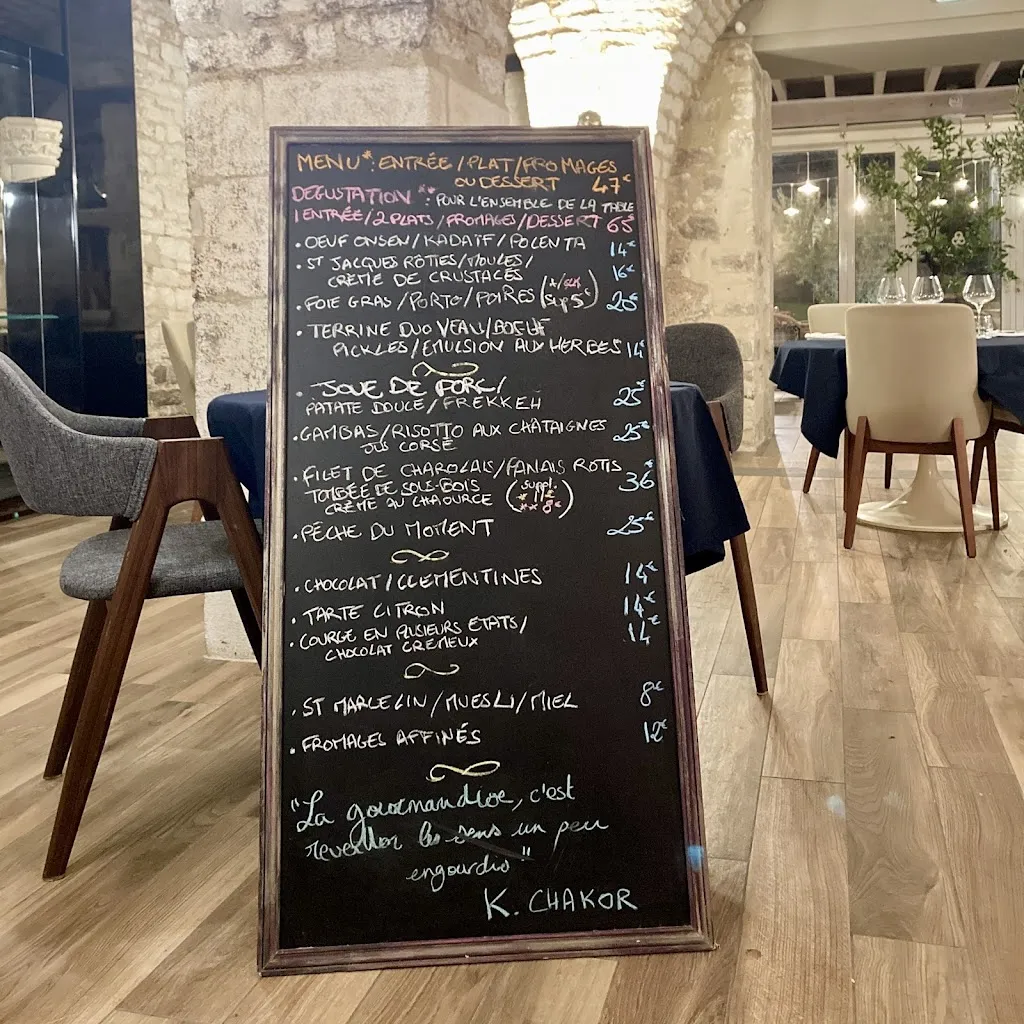 MENU*: ENTRÉE/PLAT/FROMAGES
OU DESSERT 47€
DEGUSTATION **: POUR L'ENSEMBLE DE LA TABLE
1 ENTRÉE/2 PLATS/FROMAGES/DESSERT 65
• OEUF ONSEN/KADAÏF/POLENTA 14€
• ST JACQUES ROTIES/MOULES/
CRÈME DE CRUSTACÉS 16€
• FOIE GRAS/PORTO/POIRES (*/** sup 5€) 25€
• TERRINE DUO VEAU/BOEUF
PICKLES/EMULSION AUX HERBES 14€
• JOUE DE PORC/
PATATE DOUCE/FREKKEH 25€
• GAMBAS/RISOTTO AUX CHATAIGNES
JUS CORSÉ 25€
• FILET DE CHAROLAIS/PANAIS ROTIS
TOMBÉE DE SOUS-BOIS 36€
CRÈME AU CHAOURCE (Suppl. * 11€ ** 8€)
• PÊCHE DU MOMENT 25€
• CHOCOLAT/CLEMENTINES 14€
• TARTE CITRON 14€
• COURGE EN PLUSIEURS ETATS/
CHOCOLAT CREMEUX 14€
• ST MARCELIN/MUESLI/MIEL 8€
• FROMAGES AFFINÉS 12€
"La gourmandise, c'est
reveiller les sens un peu
engourdis"
K. CHAKOR